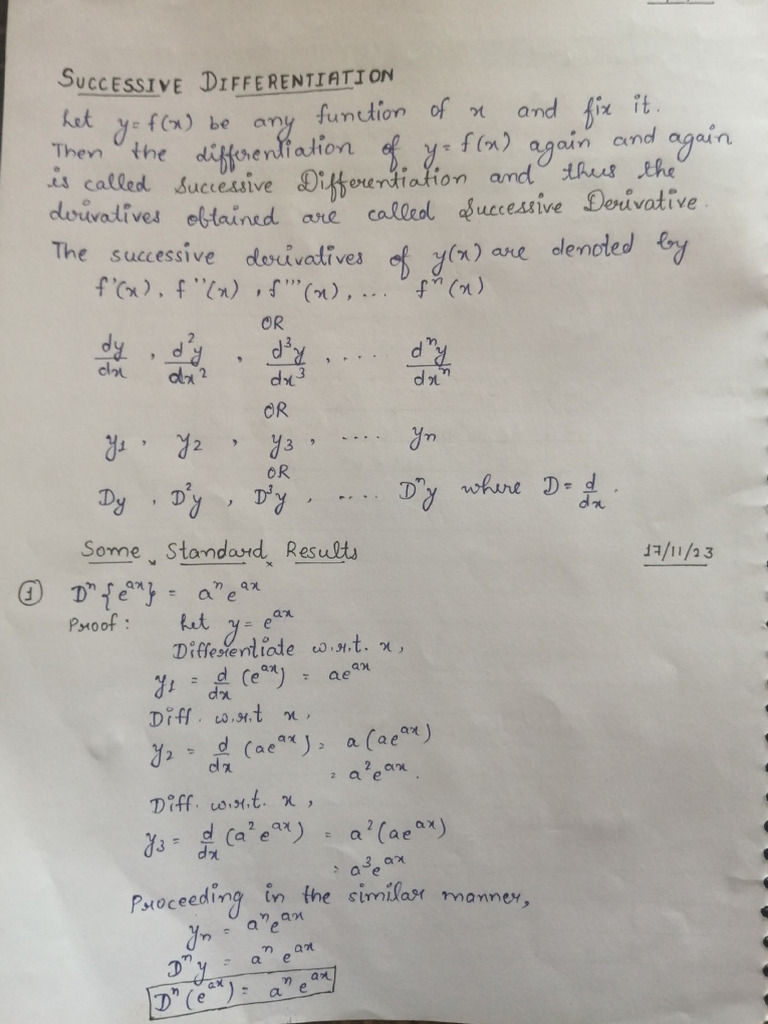 SUCCESSIVE DIFFERENTIATION
Let y = f(x) be any function of x and fix it.
Then the differentiation of y = f(x) again and again
is called Successive Differentiation and thus the
derivatives obtained are called Successive Derivative.
The successive derivatives of y(x) are denoted by
f'(x), f''(x), f'''(x), ... fⁿ(x)
OR
dy/dx, d²y/dx², d³y/dx³, .... dⁿy/dxⁿ
OR
y₁, y₂, y₃, .... yₙ
OR
Dy, D²y, D³y, .... Dⁿy where D = d/dx.
Some × Standard × Results 17/11/23
① Dⁿ{e^(ax)} = aⁿe^(ax)
Proof: Let y = e^(ax)
Differentiate w.r.t. x,
y₁ = d/dx (e^(ax)) = ae^(ax)
Diff. w.r.t x,
y₂ = d/dx (ae^(ax)) = a(ae^(ax))
= a²e^(ax).
Diff. w.r.t. x,
y₃ = d/dx (a²e^(ax)) = a²(ae^(ax))
= a³e^(ax)
Proceeding in the similar manner,
yₙ = aⁿe^(ax)
Dⁿy = aⁿ e^(ax)
Dⁿ(e^(ax)) = aⁿ e^(ax)